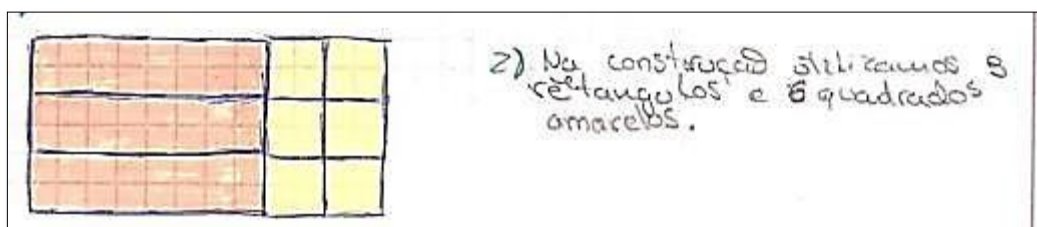 2) Na construção utilizamos 3
retangulos e 6 quadrados
amarelos.